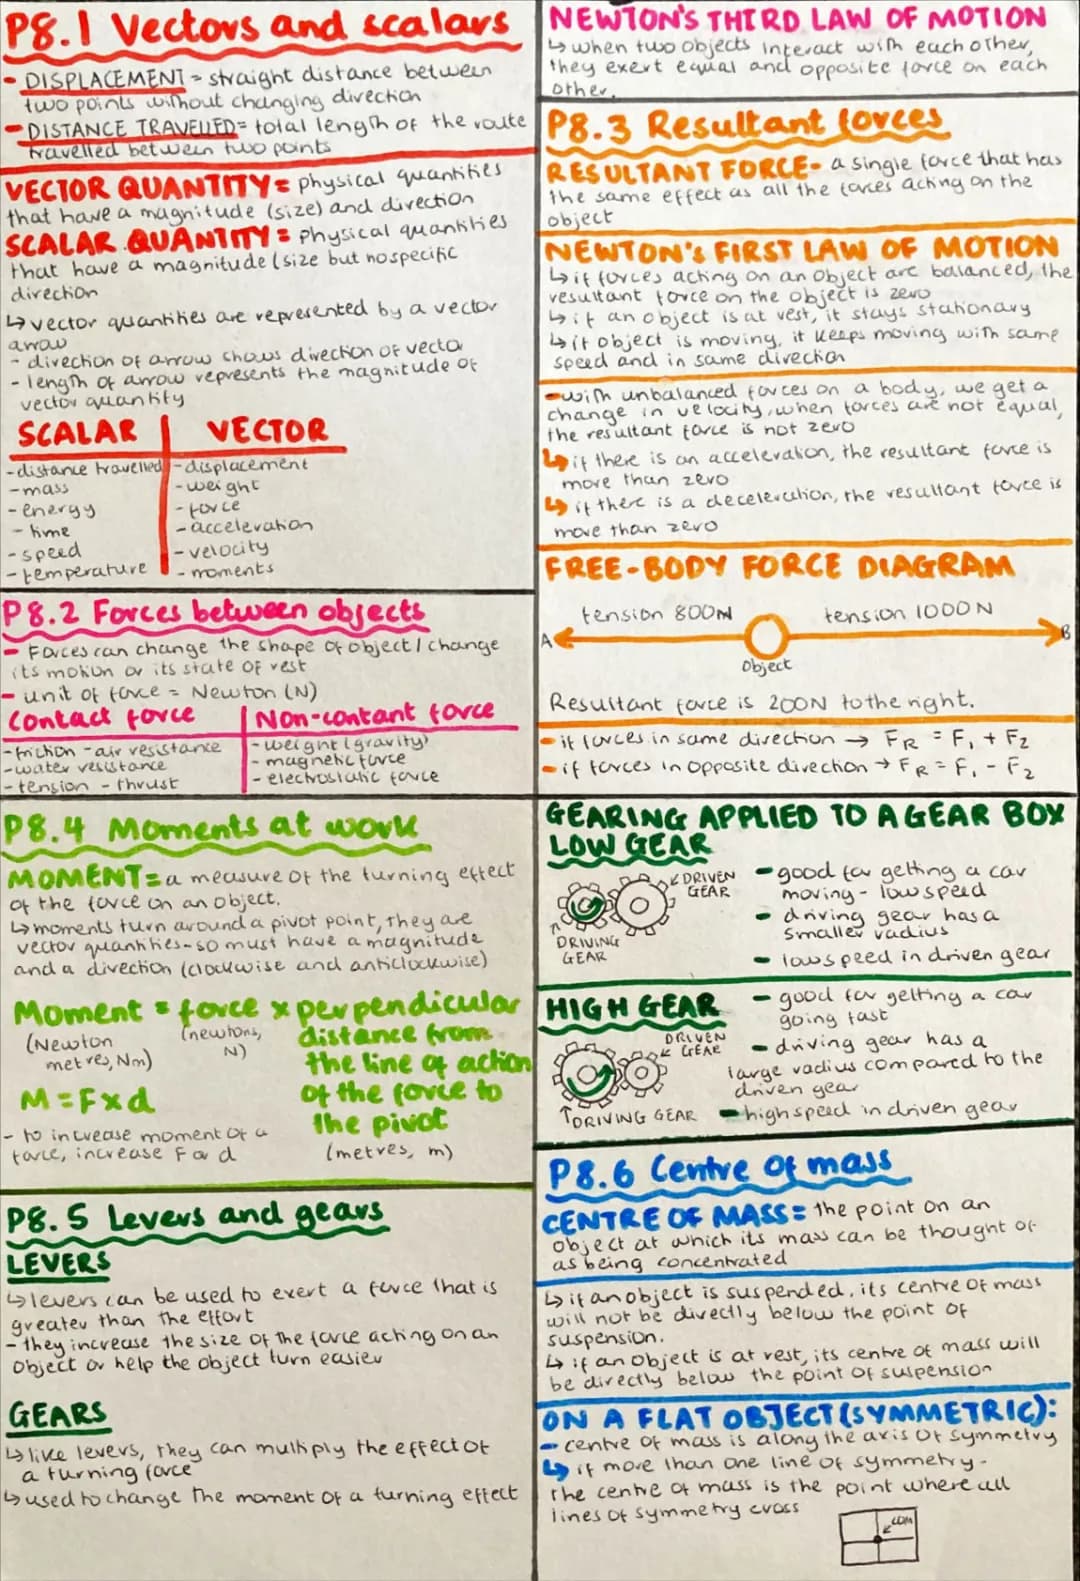 P8.1 Vectors and scalars
- DISPLACEMENT = straight distance between
two points without changing direction
- DISTANCE TRAVELLED = total length of the route
travelled between two points
VECTOR QUANTITY = physical quantities
that have a magnitude (size) and direction
SCALAR QUANTITY = physical quantities
that have a magnitude (size but no specific
direction
↳ vector quantities are represented by a vector
arrow
- direction of arrow shows direction of vector
- length of arrow represents the magnitude of
vector quantity
SCALAR | VECTOR
- distance travelled - displacement
- mass - weight
- energy - force
- time - acceleration
- speed - velocity
- temperature - moments
P8.2 Forces between objects
- Forces can change the shape of object / change
its motion or its state of rest
- unit of force = Newton (N)
Contact force | Non-contant force
- friction - air resistance - weight (gravity)
- water resistance - magnetic force
- tension - thrust - electrostatic force
P8.4 Moments at work
MOMENT = a measure of the turning effect
of the force on an object.
↳ moments turn around a pivot point, they are
vector quantities - so must have a magnitude
and a direction (clockwise and anticlockwise)
Moment = force x perpendicular
distance from
the line of action
of the force to
the pivot
(Newton metres, Nm)
(newtons, N)
(metres, m)
M = F x d
- to increase moment of a
force, increase F or d
P8.5 Levers and gears
LEVERS
↳ levers can be used to exert a force that is
greater than the effort
- they increase the size of the force acting on an
object or help the object turn easier
GEARS
↳ like levers, they can multiply the effect of
a turning force
↳ used to change the moment of a turning effect
NEWTON'S THIRD LAW OF MOTION
↳ when two objects interact with each other,
they exert equal and opposite force on each
other.
P8.3 Resultant forces
RESULTANT FORCE - a single force that has
the same effect as all the forces acting on the
object
NEWTON'S FIRST LAW OF MOTION
↳ if forces acting on an object are balanced, the
resultant force on the object is zero
↳ if an object is at rest, it stays stationary
↳ if object is moving, it keeps moving with same
speed and in same direction
- with unbalanced forces on a body, we get a
change in velocity, when forces are not equal,
the resultant force is not zero
↳ if there is an acceleration, the resultant force is
more than zero
↳ if there is a deceleration, the resultant force is
more than zero
FREE-BODY FORCE DIAGRAM
tension 800N tension 1000N
A B
Object
Resultant force is 200N to the right.
- if forces in same direction → FR = F1 + F2
- if forces in opposite direction → FR = F1 - F2
GEARING APPLIED TO A GEAR BOX
LOW GEAR
DRIVEN
GEAR
DRIVING
GEAR
- good for getting a car
moving - low speed
- driving gear has a
smaller radius
- low speed in driven gear
HIGH GEAR
DRIVEN
GEAR
DRIVING GEAR
- good for getting a car
going fast
- driving gear has a
large radius compared to the
driven gear
- high speed in driven gear
P8.6 Centre of mass
CENTRE OF MASS = the point on an
object at which its mass can be thought of
as being concentrated
↳ if an object is suspended, its centre of mass
will not be directly below the point of
suspension.
↳ if an object is at rest, its centre of mass will
be directly below the point of suspension
ON A FLAT OBJECT (SYMMETRIC):
- centre of mass is along the axis of symmetry
↳ if more than one line of symmetry -
the centre of mass is the point where all
lines of symmetry cross
COM